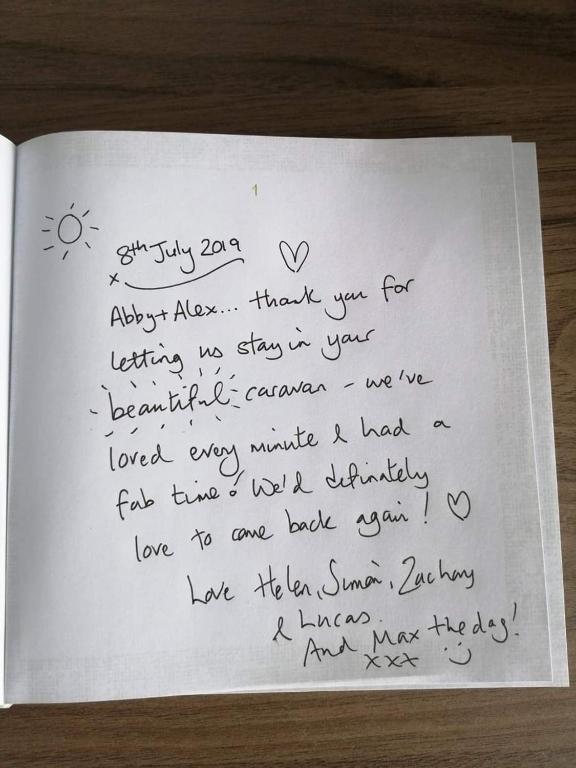 1
8th July 2019
x
Abby + Alex... thank you for
letting us stay in your
beautiful caravan - we've
loved every minute & had a
fab time! We'd definately
love to come back again!
Love Helen, Simon, Zachary
& Lucas.
And Max the dog!
xxx